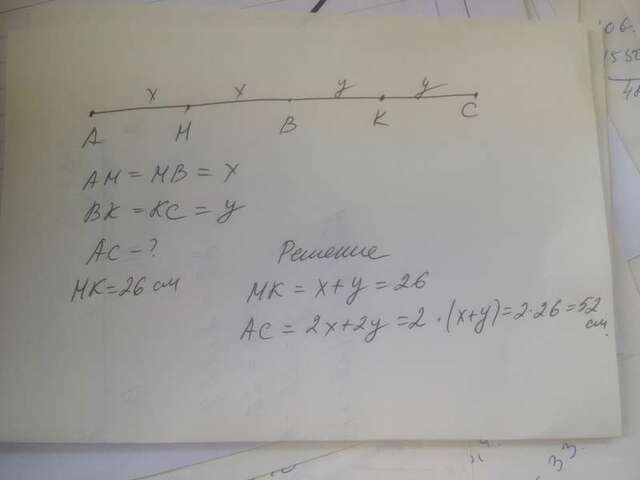 x x y y
A M B K C
AM = MB = x
BK = KC = y
AC - ?
Решение
MK = 26 см
MK = x + y = 26
AC = 2x + 2y = 2 · (x+y) = 2·26 = 52
см.
06.
48
33